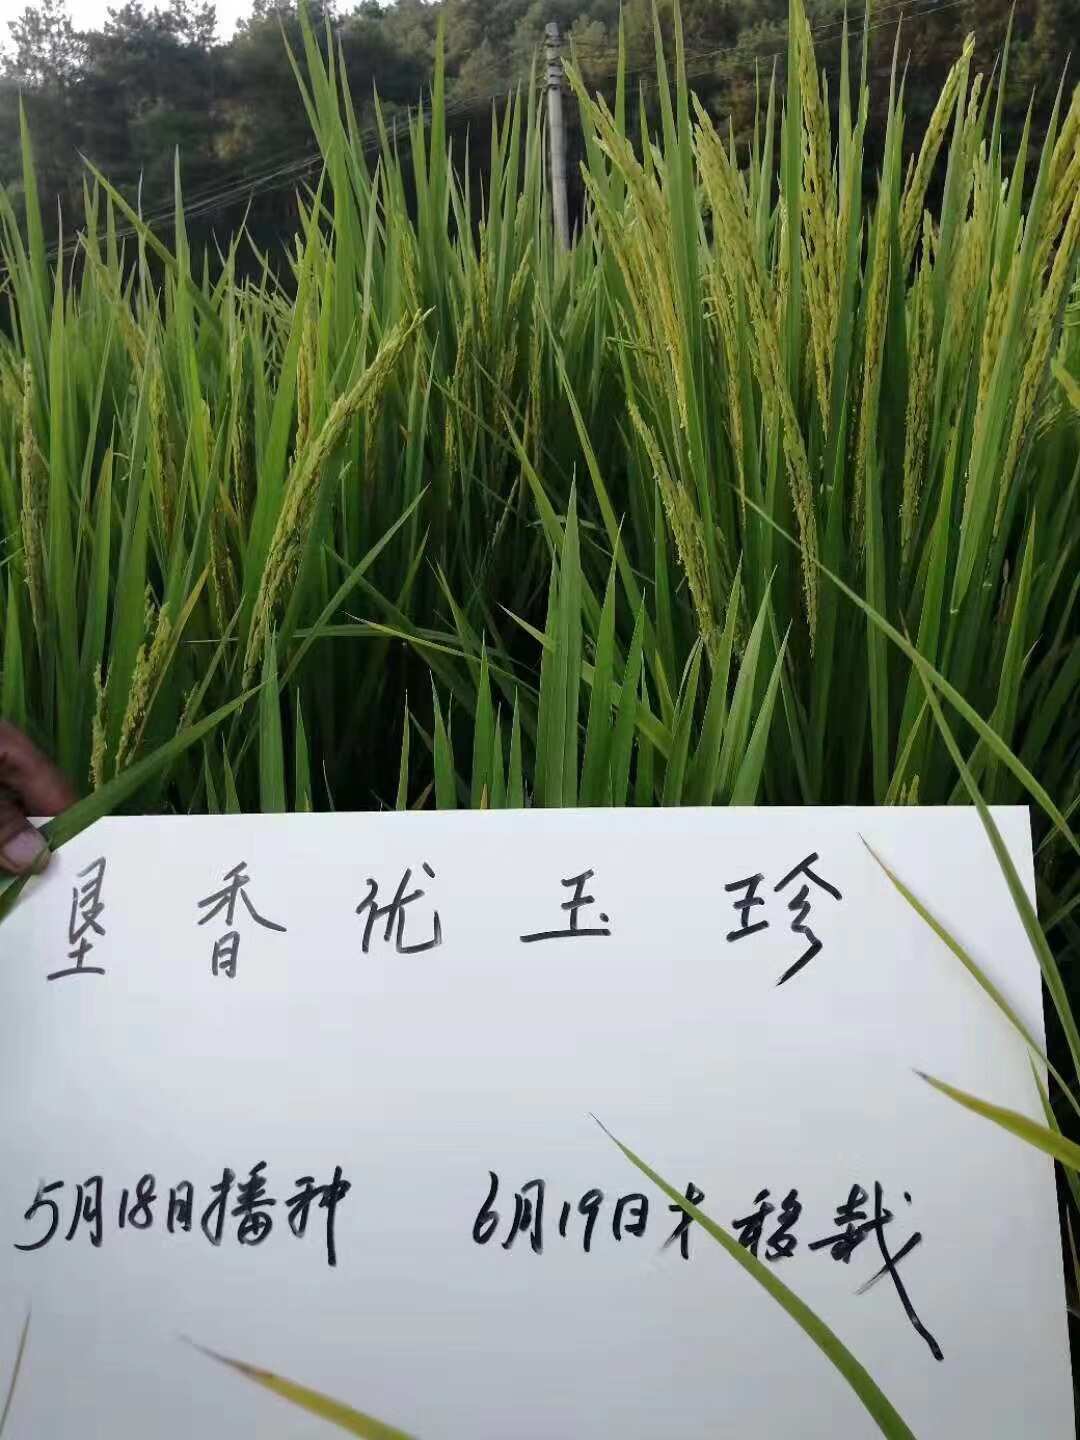 垦香优玉珍
5月18日播种 6月19日 移栽